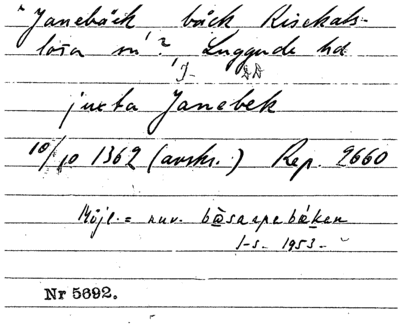 "Janebäck bäck Risekats-
lösa sn? Luggude hd
juxta Janebek
10/10 1362 (avskr.) Rep. 2660
Möjl. = nuv. båsarpebäken
I-s. 1953
Nr 5692.